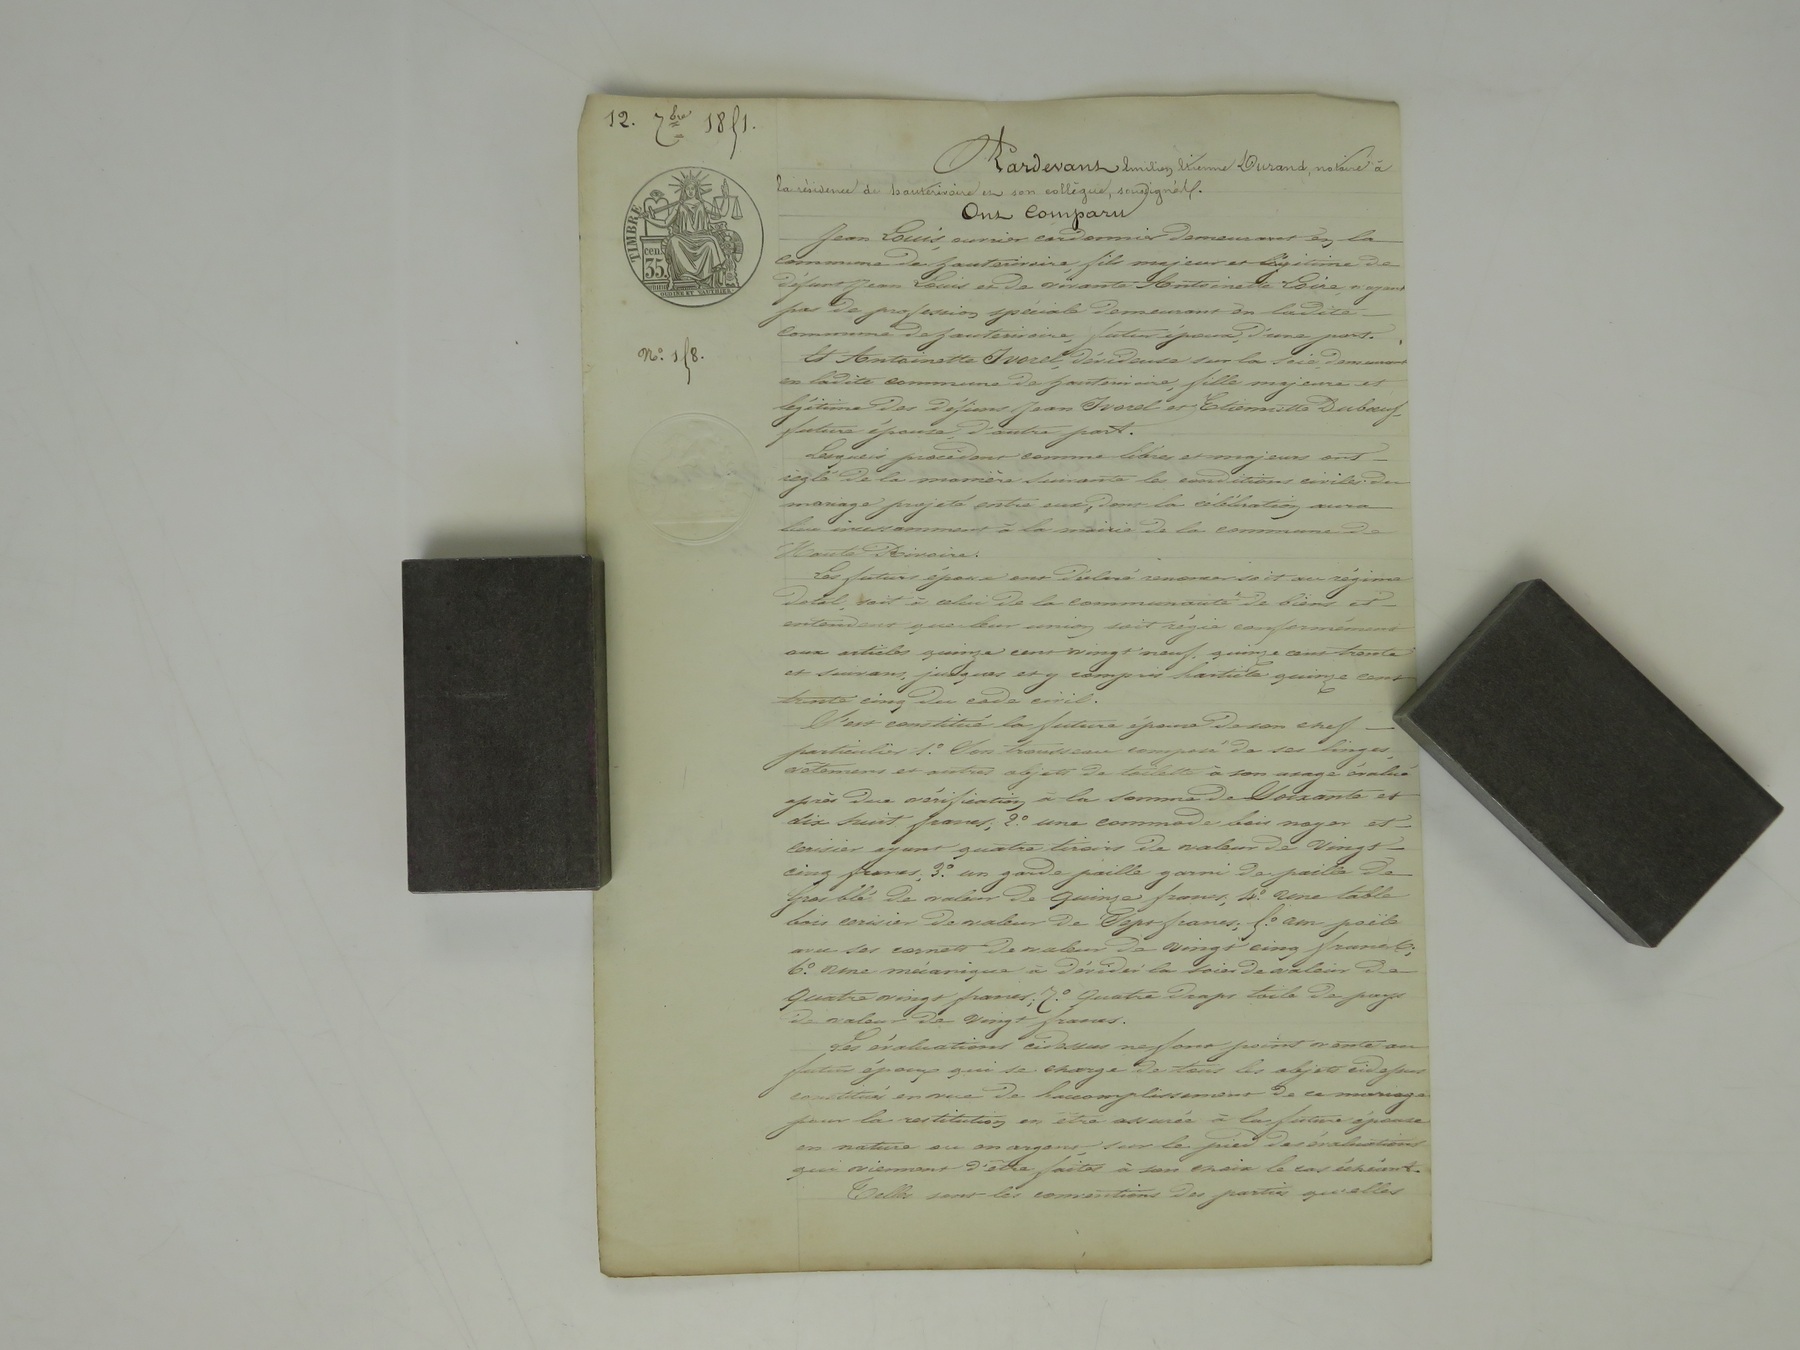 12. 7bre 1851.
TIMBRE
cen.
35.
N.° 158.
Pardevant Emilien Etienne Durand, notaire à
la résidence de hauterivoire et son collègue, soussignés.
Ont Comparu
Jean Louis, ouvrier cordonnier demeurant en la
commune de hauterivoire, fils majeur et légitime de
défunt Jean Louis et de vivante Antoinette Loire, n'ayant
pas de profession spéciale demeurant en ladite
commune de hauterivoire, futur époux, d'une part.
Et Antoinette Ivorel, dévideuse sur la soie, demeurant
en ladite commune de hauterivoire, fille majeure et
légitime des défunts Jean Ivorel et Etiennette Duboeuf,
future épouse, d'autre part.
Lesquels procédant comme libres et majeurs ont
réglé de la manière suivante les conditions civiles du
mariage projeté entre eux, dont la célébration aura
lieu incessamment à la mairie de la commune de
Haute Rivoire.
Les futurs époux ont déclaré renoncer soit au régime
dotal, soit à celui de la communauté de biens et
entendent que leur union soit régie conformément
aux articles quinze cent vingt neuf, quinze cent trente
et suivans, jusques et y compris l'article quinze cent
trente cinq du code civil.
S'est constitué la future épouse de son chef
particulier 1.° Son trousseau composé de ses linges,
vêtemens et autres objets de toilette à son usage évalué
après due vérification à la somme de Soixante et
dix huit francs; 2.° une commode bois noyer et
cerisier ayant quatre tiroirs de valeur de vingt
cinq francs, 3.° un garde paille garni de paille de
gros blé de valeur de quinze francs, 4.° une table
bois cerisier de valeur de Sept francs; 5.° un poële
avec ses cornets de valeur de vingt cinq francs;
6.° une mécanique à dévider la soie de valeur de
quatre vingt francs; 7.° quatre draps toile de pays
de valeur de vingt francs.
Les évaluations cidessus ne font point vente au
futur époux qui se charge de tous les objets cidessus
constitués en vue de l'accomplissement de ce mariage
pour la restitution en être assurée à la future épouse
en nature ou en argent, sur le pied des évaluations
qui viennent d'être faites à son choix le cas échéant.
Telles sont les conventions des parties qu'elles